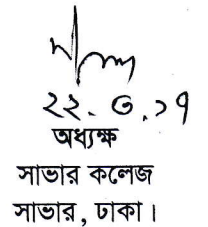 ২২.৩.১৭
অধ্যক্ষ
সাভার কলেজ
সাভার, ঢাকা।